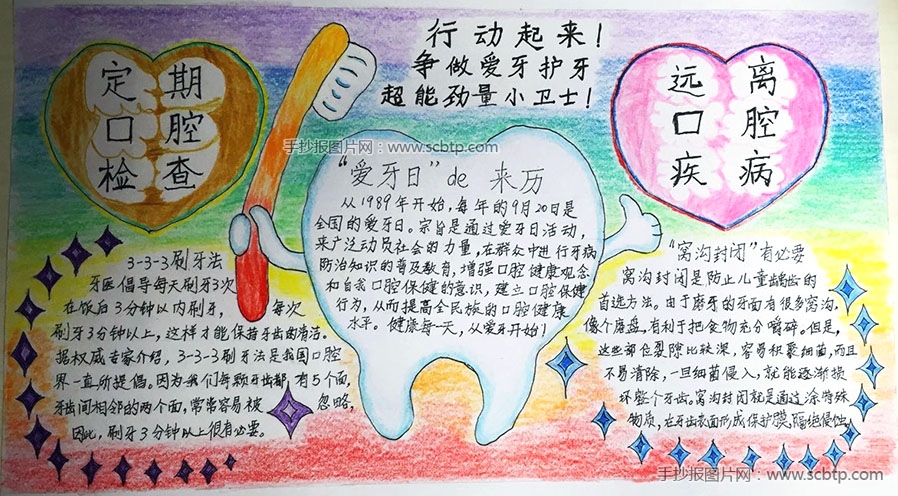 行动起来!
争做爱牙护牙
超能劲量小卫士!
定期
口腔
检查
远离
口腔
疾病
手抄报图片网:www.scbtp.com
“爱牙日”de 来历
从1989年开始,每年的9月20日是
全国的爱牙日。宗旨是通过爱牙日活动,
来广泛动员社会的力量,在群众中进行牙病
防治知识的普及教育,增强口腔健康观念
和自我口腔保健的意识,建立口腔保健
行为,从而提高全民族的口腔健康
水平。健康每一天,从爱牙开始!
3-3-3刷牙法
牙医倡导每天刷牙3次
在饭后3分钟以内刷牙, 每次
刷牙3分钟以上,这样才能保持牙齿的清洁。
据权威专家介绍,3-3-3刷牙法是我国口腔
界一直所提倡。因为我们每颗牙齿都有5个面,
牙齿间相邻的两个面,常常容易被 忽略,
因此,刷牙3分钟以上很有必要。
“窝沟封闭”有必要
窝沟封闭是防止儿童龋齿的
首选方法。由于磨牙的牙面有很多窝沟,
像个磨盘,有利于把食物充分嚼碎。但是,
这些部位裂隙比较深,容易积聚细菌,而且
不易清除,一旦细菌侵入,就能逐渐损
坏整个牙齿。窝沟封闭就是通过涂特殊
物质,在牙齿表面形成保护膜,隔绝侵蚀!
手抄报图片网:www.scbtp.com